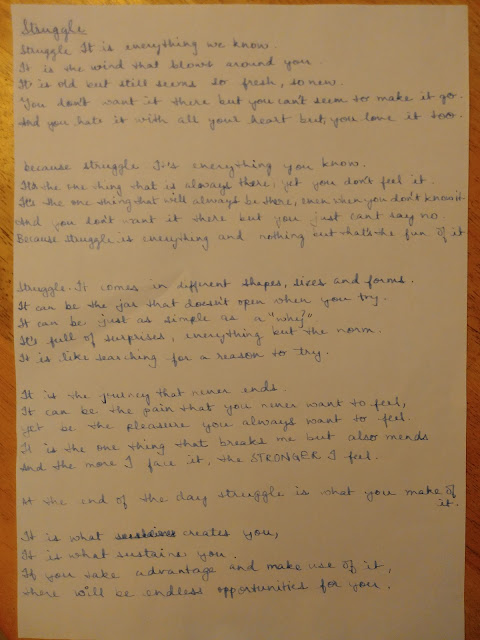 Struggle
Struggle It is everything we know.
It is the wind that blows around you.
It is old but still seems so fresh, so new.
You don't want it there but you can't seem to make it go.
And you hate it with all your heart but, you love it too.
because struggle It's everything you know.
It's the one thing that is always there, yet you don't feel it.
It's the one thing that will always be there, even when you don't know it
And you don't want it there but you just can't say no.
Because struggle is everything and nothing but that's the fun of it
Struggle. It comes in different shapes, sizes and forms.
It can be the jar that doesn't open when you try.
It can be just as simple as a "why?"
It's full of surprises, everything but the norm.
It is like searching for a reason to try.
It is the journey that never ends.
It can be the pain that you never want to feel,
yet be the pleasure you always want to feel.
It is the one thing that breaks me but also mends
And the more I face it, the STRONGER I feel.
At the end of the day struggle is what you make of
it.
It is what creates you,
It is what sustains you.
If you take advantage and make use of it,
there will be endless opportunities for you.